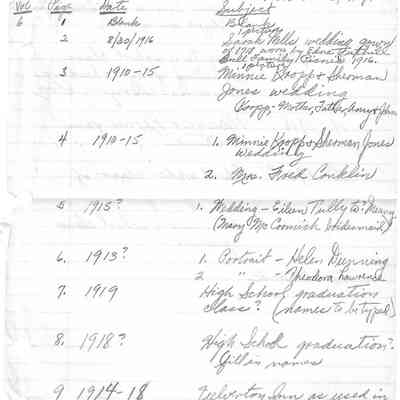 Vol Page Date Subject
6 1 Blank Blank
1 picture
2 8/20/1916 Sarah Wells wedding gown
of 1718 worn by Edna
Bull Family Picnic 1916.
3 1910-15 Minnie Kropp & Sherman
Jones wedding
Kropp - Mother, Father, Amy & John
4 1910-15 1. Minnie Kropp & Sherman Jones
wedding
2. Mrs. Fred Conklin
5 1915? 1. Wedding - Eileen Tully to
(Mary McCormick bridesmaid)
6. 1913? 1. Portrait - Helen Dunning
2 " - Theodora Lawrence
7. 1919 High School graduation
class? (names to be typed)
8. 1918? High School graduation?
Fill in names
9 1914-18 Inn as used in